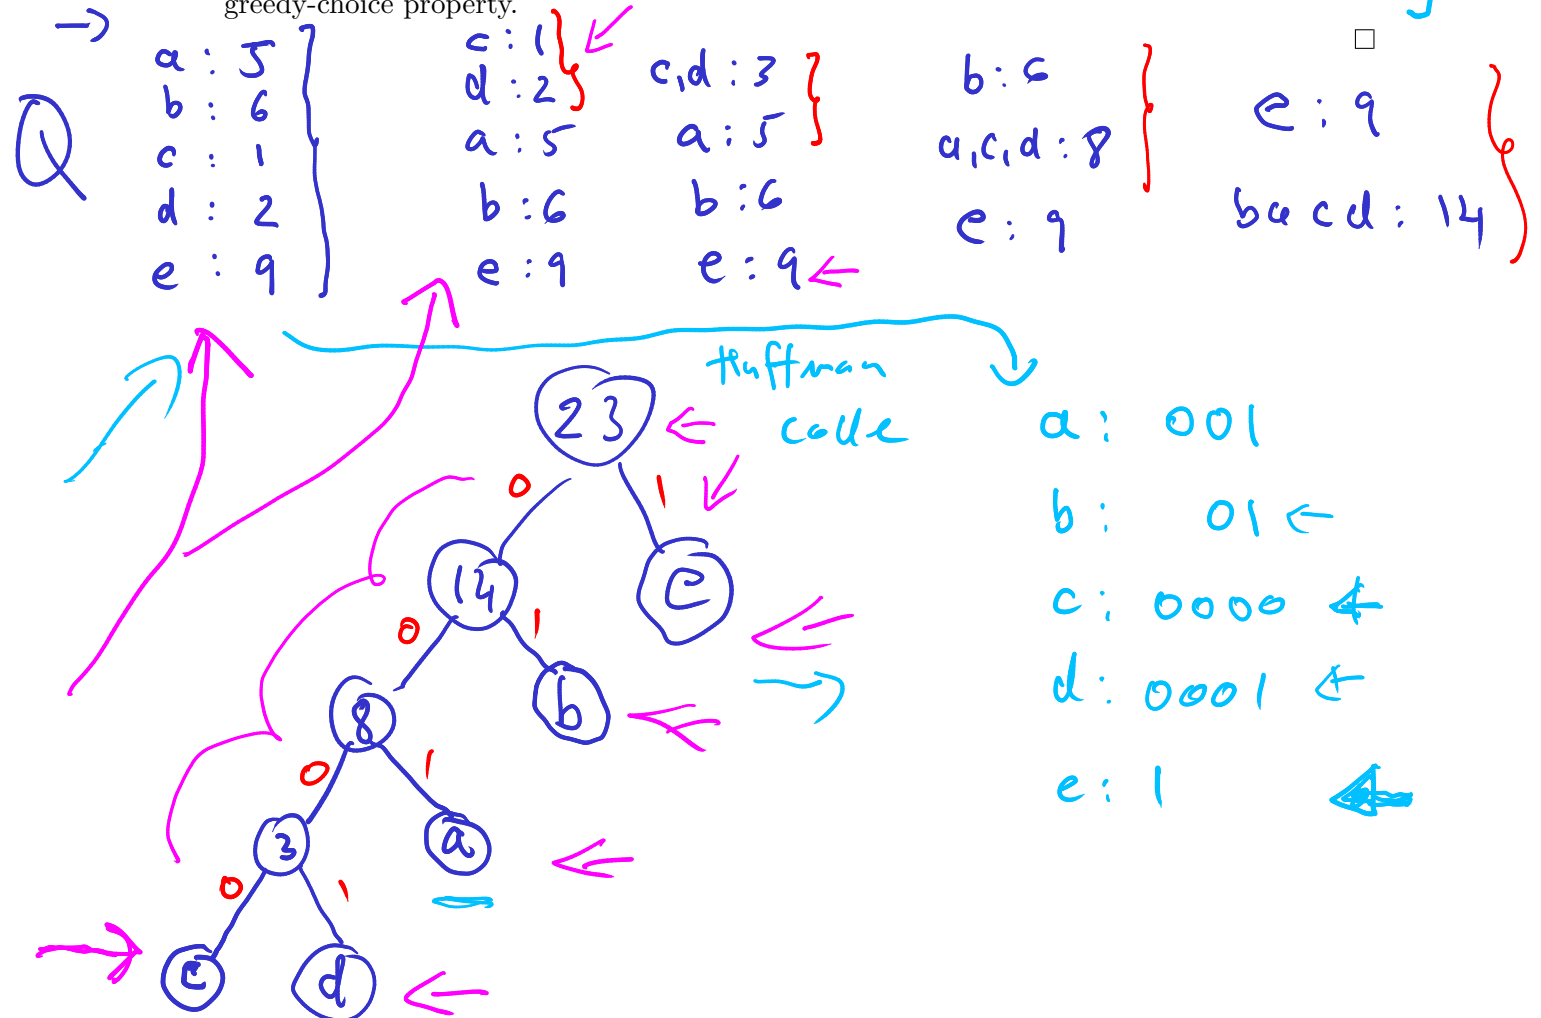 greedy-choice property.
Q
a : 5
b : 6
c : 1
d : 2
e : 9
c : 1
d : 2
a : 5
b : 6
e : 9
c,d : 3
a : 5
b : 6
e : 9
b : 6
a,c,d : 8
e : 9
e : 9
bacd : 14
Huffman
code
23
0 1
14 e
0 1
8 b
0 1
3 a
0 1
c d
a : 001
b : 01
c : 0000
d : 0001
e : 1